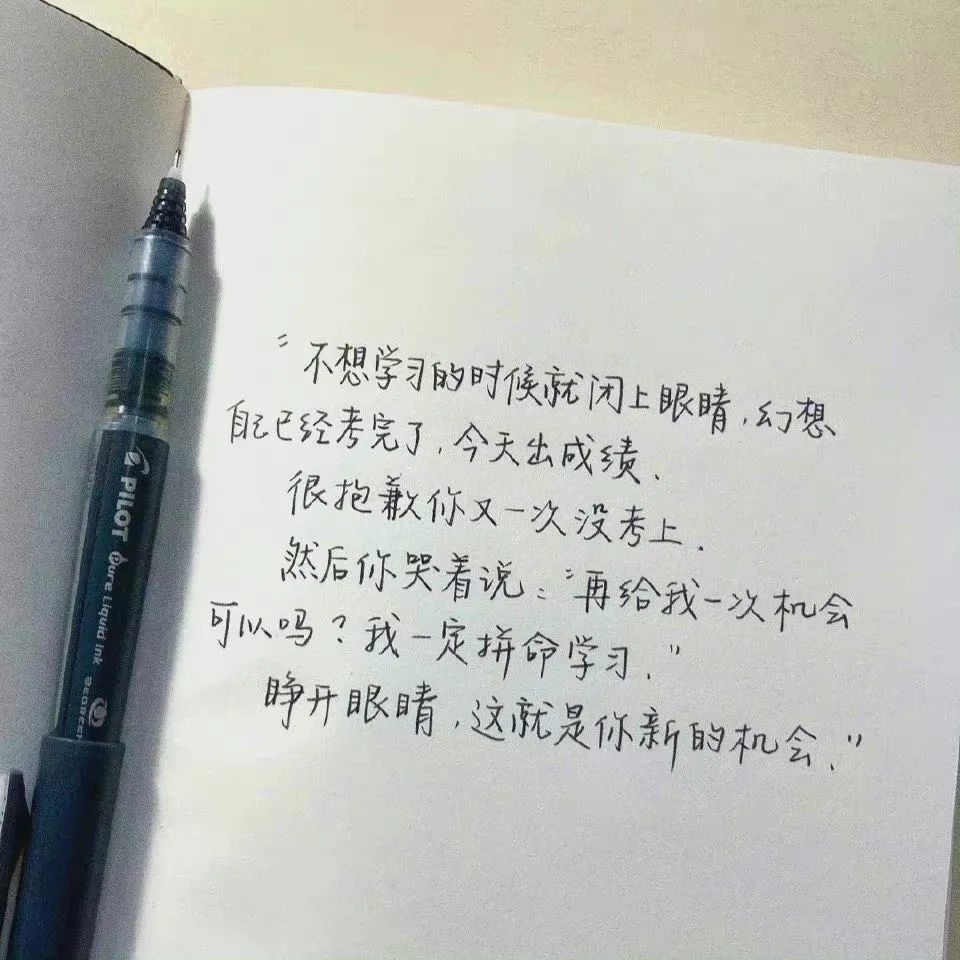 “不想学习的时候就闭上眼睛，幻想
自己已经考完了，今天出成绩．
很抱歉你又一次没考上．
然后你哭着说：“再给我一次机会
可以吗？我一定拼命学习．”
睁开眼睛，这就是你新的机会．”
PILOT
Pure Liquid Ink
BEGREEN